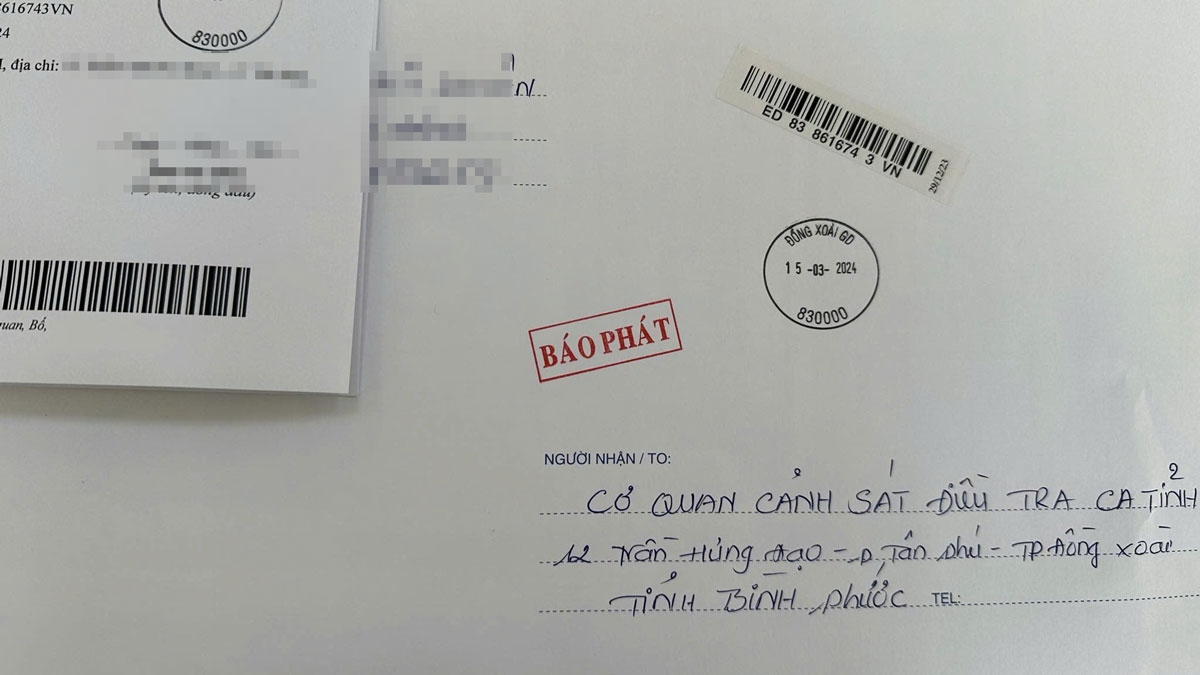 8616743VN
24
830000
, địa chỉ:
uan, Bố,
ED 83 861674 3 VN
29/12/23
ĐỒNG XOÀI GD
15-03-2024
830000
BÁO PHÁT
NGƯỜI NHẬN / TO:
CƠ QUAN CẢNH SÁT ĐIỀU TRA CA TỈNH
12 Trần Hưng Đạo - P, Tân Phú - TP Đồng Xoài
TỈNH BÌNH PHƯỚC TEL: